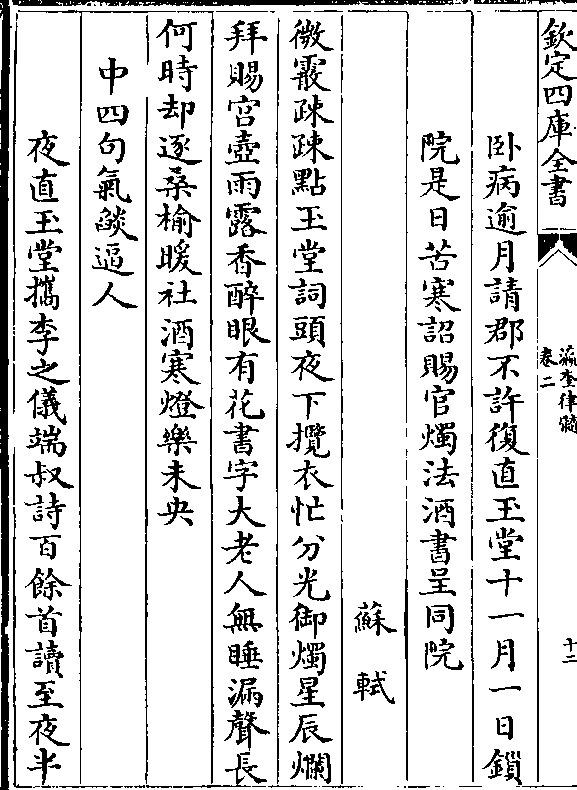 欽定四庫全書
瀛奎律髓
卷二
十二
卧病逾月請郡不許復直玉堂十一月一日鎖
院是日苦寒詔賜官燭法酒書呈同院
蘇軾
微霰疎疎點玉堂詞頭夜下攬衣忙分光御燭星辰爛
拜賜宫壺雨露香醉眼有花書字大老人無睡漏聲長
何時却逐桑榆暖社酒寒燈樂未央
中四句氣燄逼人
夜直玉堂攜李之儀端叔詩百餘首讀至夜半